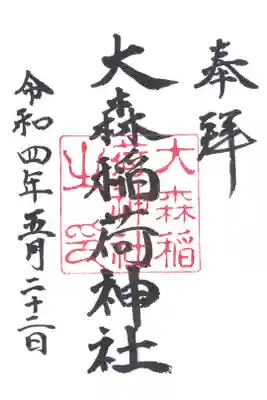 奉拜
大森稲荷神社
大森稲
荷神社
之印
令和四年五月二十二日